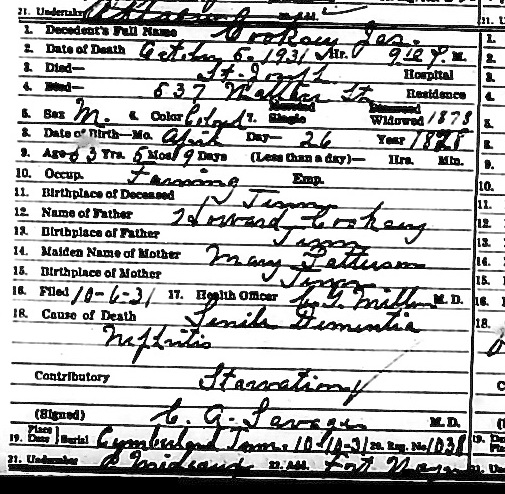 21. Undertaker
1. Decedent's Full Name Cooksey Jas.
2. Date of Death October 5. 1931 Hr. 9 10 P. M.
3. Died— St. Joseph Hospital
4. Died— 537 St Residence
5. Sex M. 6. Color Colored 7. Married Single Widowed Divorced 1878
8. Date of Birth—Mo. April Day— 26 Year 1878
9. Age 53 Yrs. 5 Mos 9 Days (Less than a day)— Hrs. Min.
10. Occup. Farming Emp.
11. Birthplace of Deceased Tenn
12. Name of Father Howard Cooksey
13. Birthplace of Father Tenn
14. Maiden Name of Mother Mary Patterson
15. Birthplace of Mother Tenn
16. Filed 10-6-31 17. Health Officer Miller M. D.
18. Cause of Death Senile Dementia
Nephritis
Contributory Starvation
(Signed) C. A. Savage M. D.
19. Place Date Burial Cumberland Tenn. 10-10-31 20. Reg. No 1038
21. Undertaker 22. Add. Fort Wayne